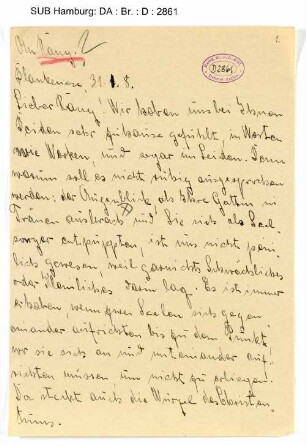 SUB Hamburg: DA : Br. : D : 2861
An Rang?
1.
D2861
Blankenese, 31. 1. 8.
Lieber Rang! Wir haben uns bei Ihnen
Beiden sehr zuhause gefühlt, in Worten
wie Werken, und sogar im Leiden. Denn
warum soll es nicht ruhig ausgesprochen
werden: der Augenblick als Ihre Gattin in
Tränen ausbrach und Sie sich als Seel
sorger entpuppten ist uns nicht pein
lich gewesen, weil garnichts Schwächliches
oder Kleinliches darin lag. Es ist immer
erhaben, wenn zwei Seelen sich gegen
einander aufrichten bis zu dem Punkt,
wo sie sich an und miteinander auf
richten müssen um nicht zu erliegen.
Da steckt auch die Wurzel des Christen
tums.